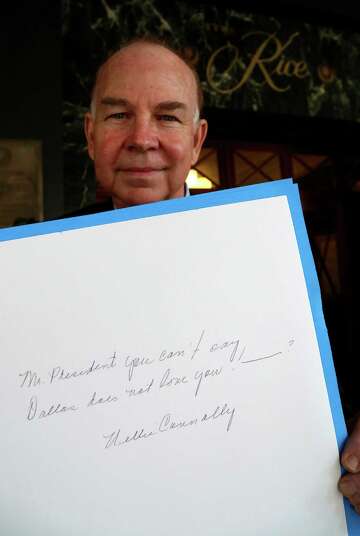 Rice
Mr. President you can't say,
Dallas does not love you!, ___"
Nellie Connally